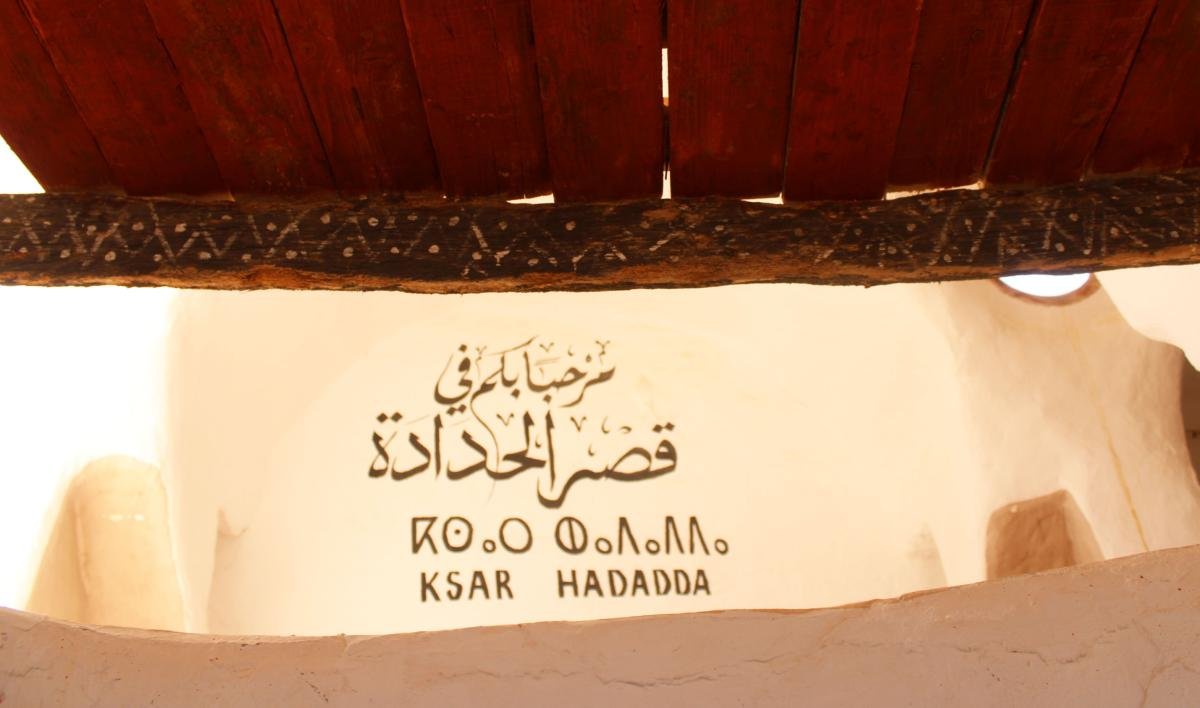 مرحبا بكم في
قصر الحدادة
ⴽⵙⴰⵔ ⵀⴰⴷⴰⴷⴷⴰ
KSAR HADADDA